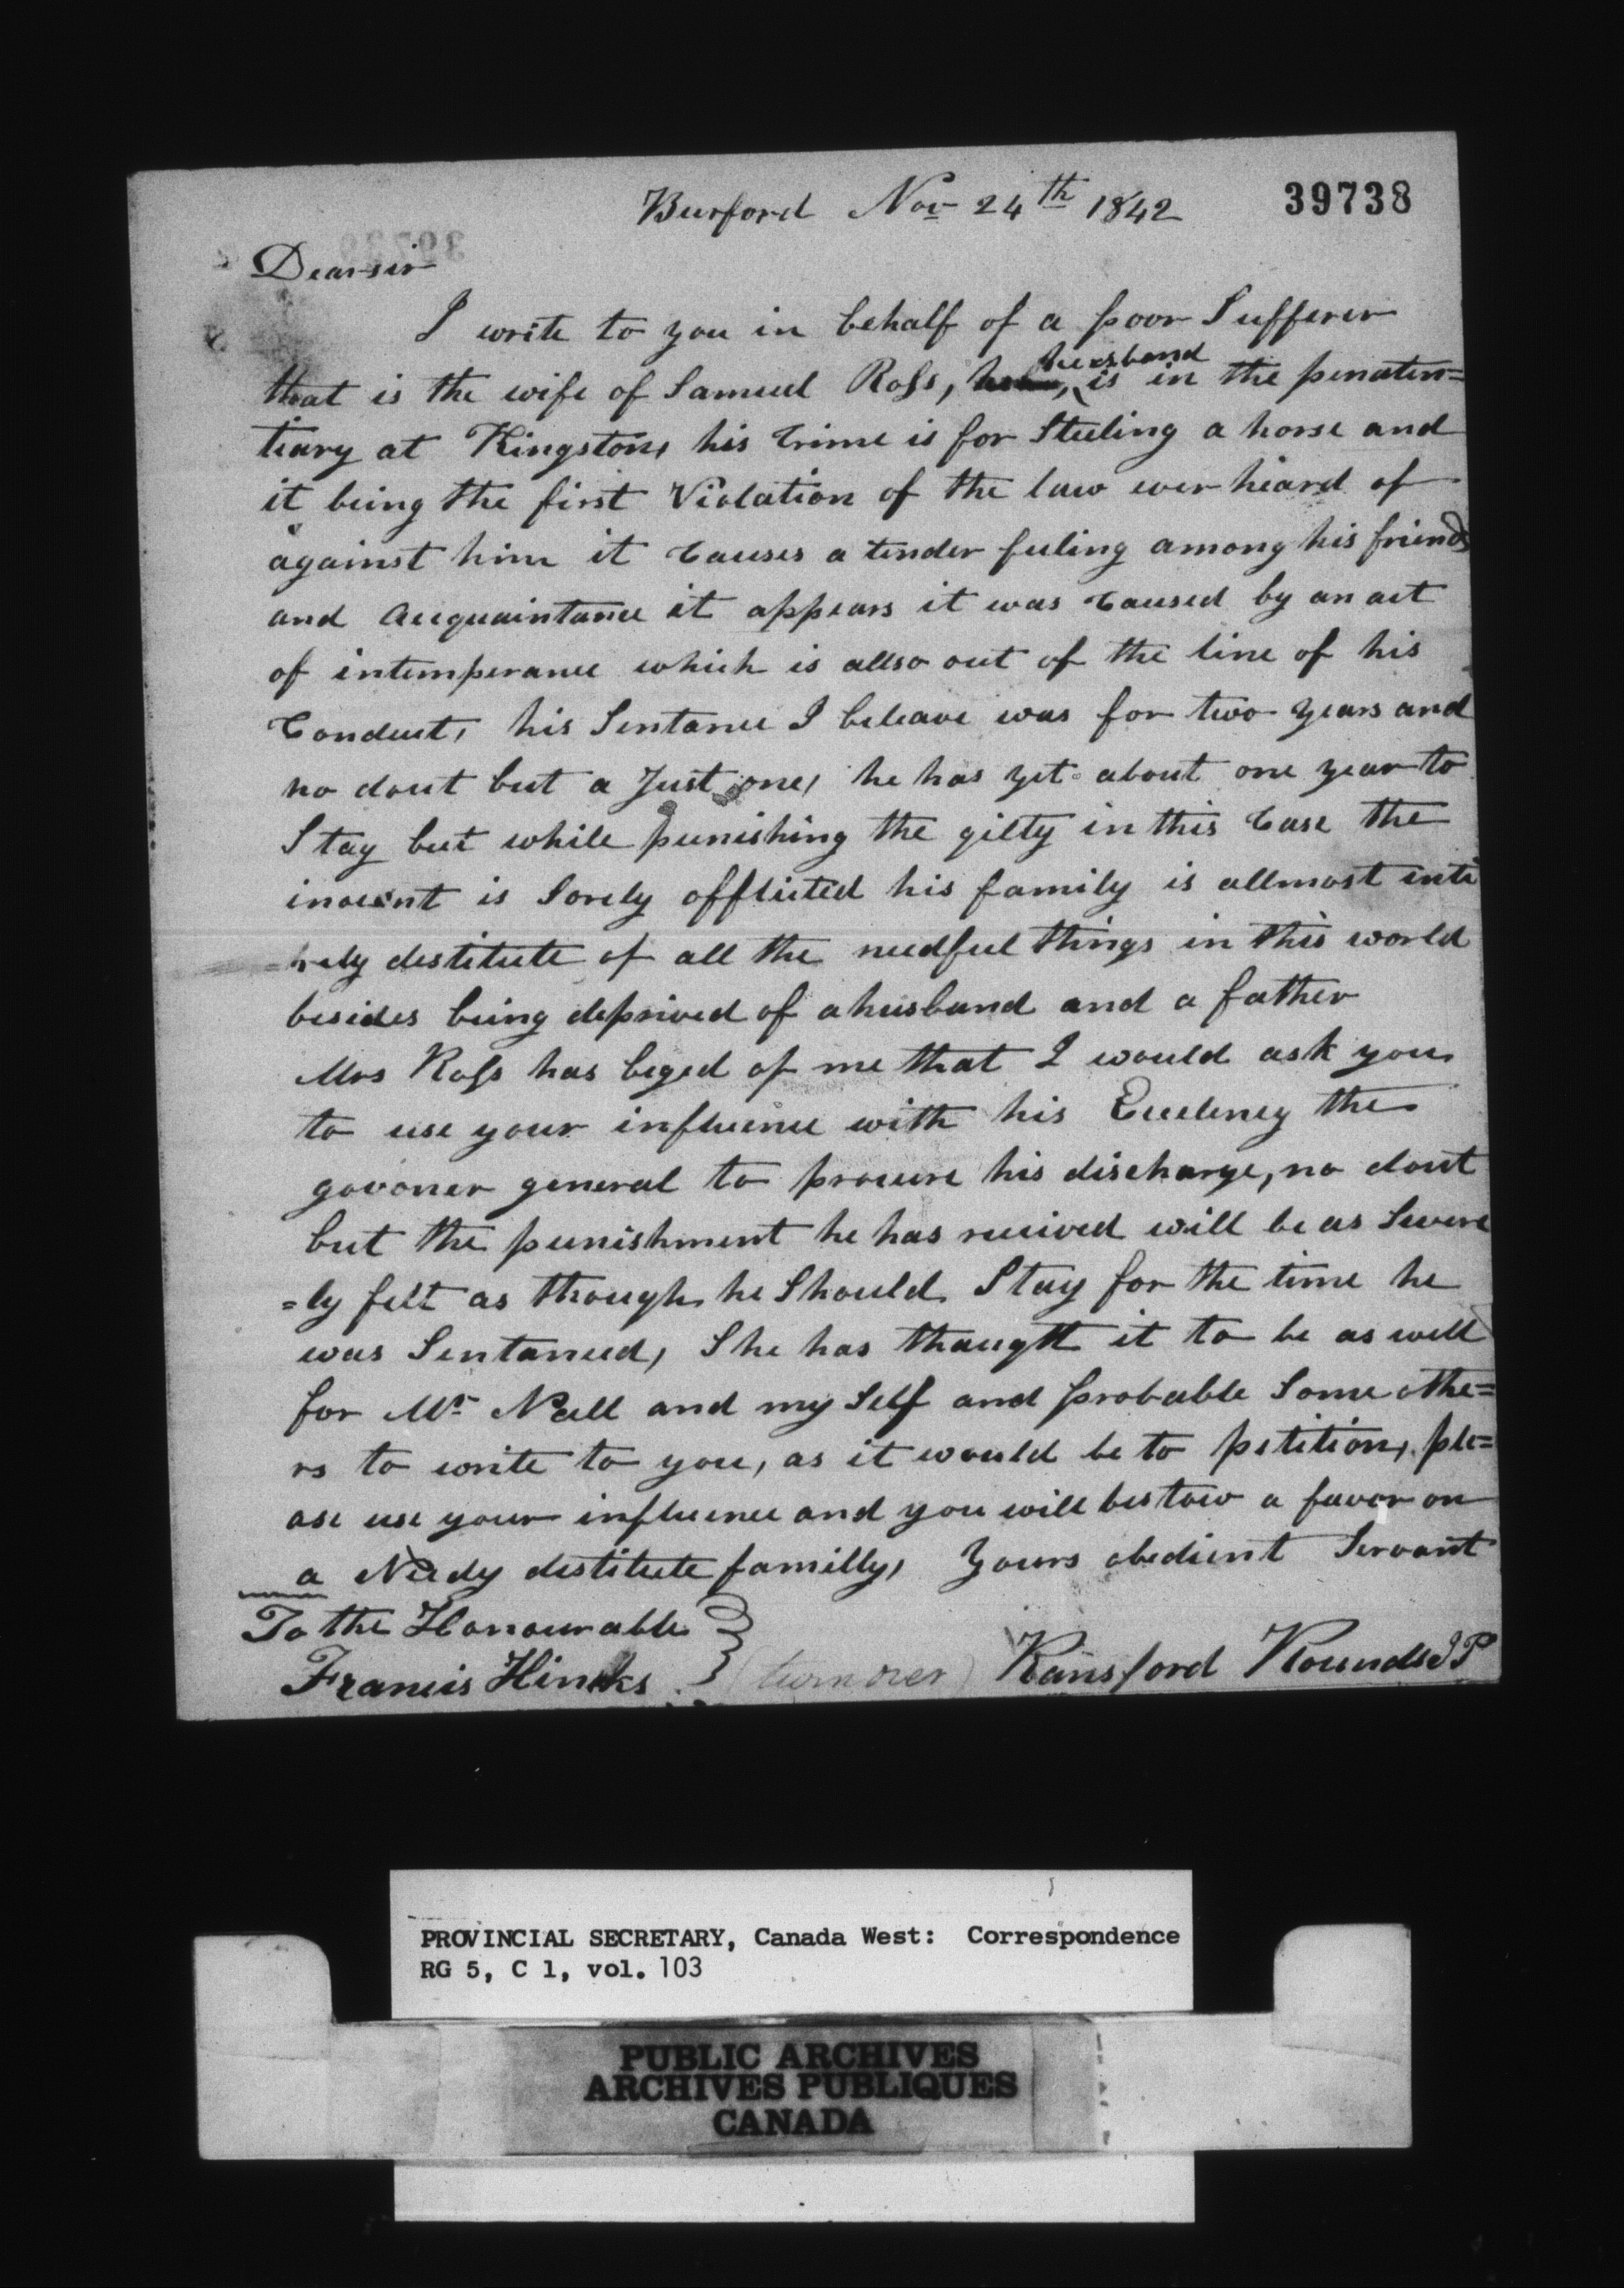 Burford Nov 24th 1842
39738
Dear sir
I write to you in behalf of a poor Sufferer
that is the wife of Samuel Ross, husband is in the penaten=
tiary at Kingston, his Crime is for Steeling a horse and
it being the first Violation of the law ever heard of
against him it Causes a tender feeling among his friends
and Acquaintance it appears it was Caused by an act
of intemperance which is allso out of the line of his
Conduct, his Sentance I beleave was for two years and
no dout but a Just one, he has yet about one year to
Stay but while punishing the gilty in this Case the
inocent is Sorely afflicted his family is allmost inti
=rely destitute of all the needful things in this world
besides being deprived of a husband and a father
Mrs Ross has beged of me that I would ask you
to use your influence with his Excelency the
govoner general to procure his discharge, no dout
but the punishment he has received will be as Severe
=ly felt as though he Should Stay for the time he
was Sentanced, She has thaught it to be as well
for Mr Nall and my Self and probable Some othe=
rs to write to you, as it would be to petition, ple=
ase use your influence and you will bestow a favor on
a Needy destitute familly, Yours obedient Servant
To the Honourable
Francis Hincks
(turn over)
Ransford Rounds JP
PROVINCIAL SECRETARY, Canada West: Correspondence
RG 5, C 1, vol. 103
PUBLIC ARCHIVES
ARCHIVES PUBLIQUES
CANADA